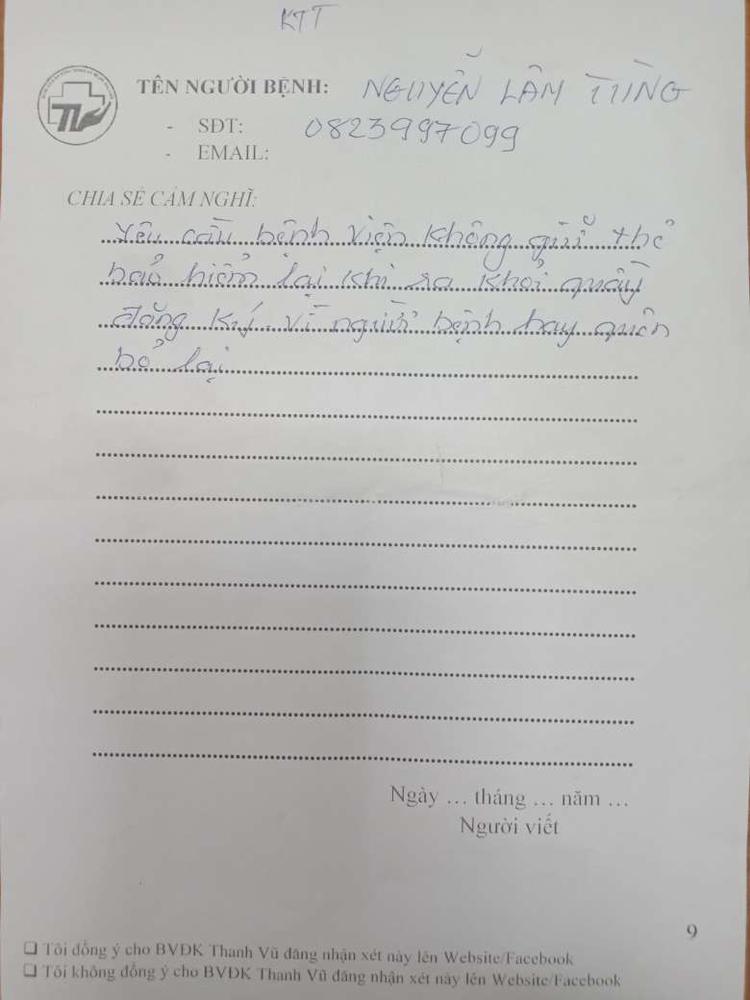 KTT
TÊN NGƯỜI BỆNH: NGUYỄN LÂM TÙNG
- SĐT: 0823997099
- EMAIL:
CHIA SẺ CẢM NGHĨ:
Yêu cầu bệnh viện không giữ thẻ
bảo hiểm lại khi ra khỏi quầy
đăng ký. Vì người bệnh hay quên
bỏ lại
Ngày ... tháng ... năm ...
Người viết
9
❑ Tôi đồng ý cho BVĐK Thanh Vũ đăng nhận xét này lên Website/Facebook
❑ Tôi không đồng ý cho BVĐK Thanh Vũ đăng nhận xét này lên Website/Facebook